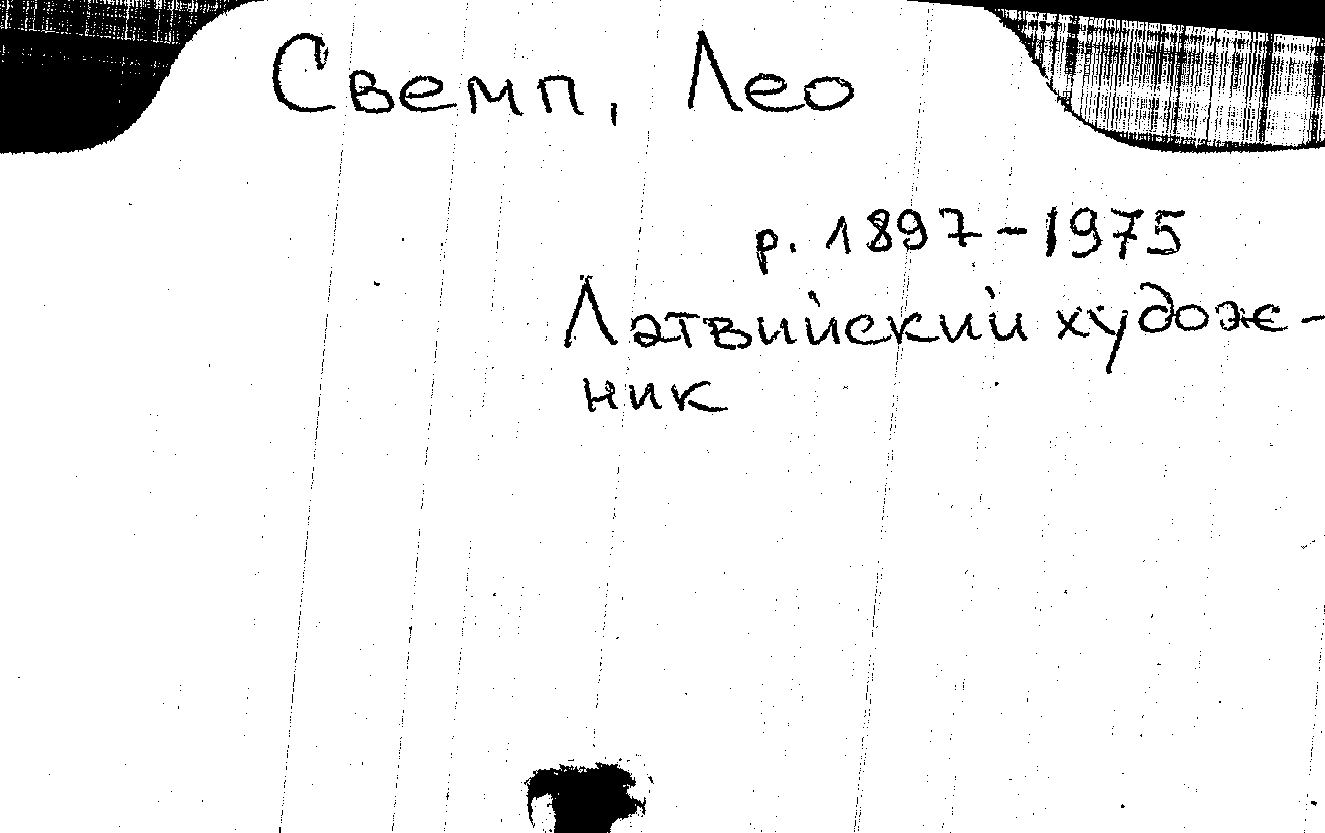 Свемп, Лео
р. 1897-1975
Латвийский худож-
ник